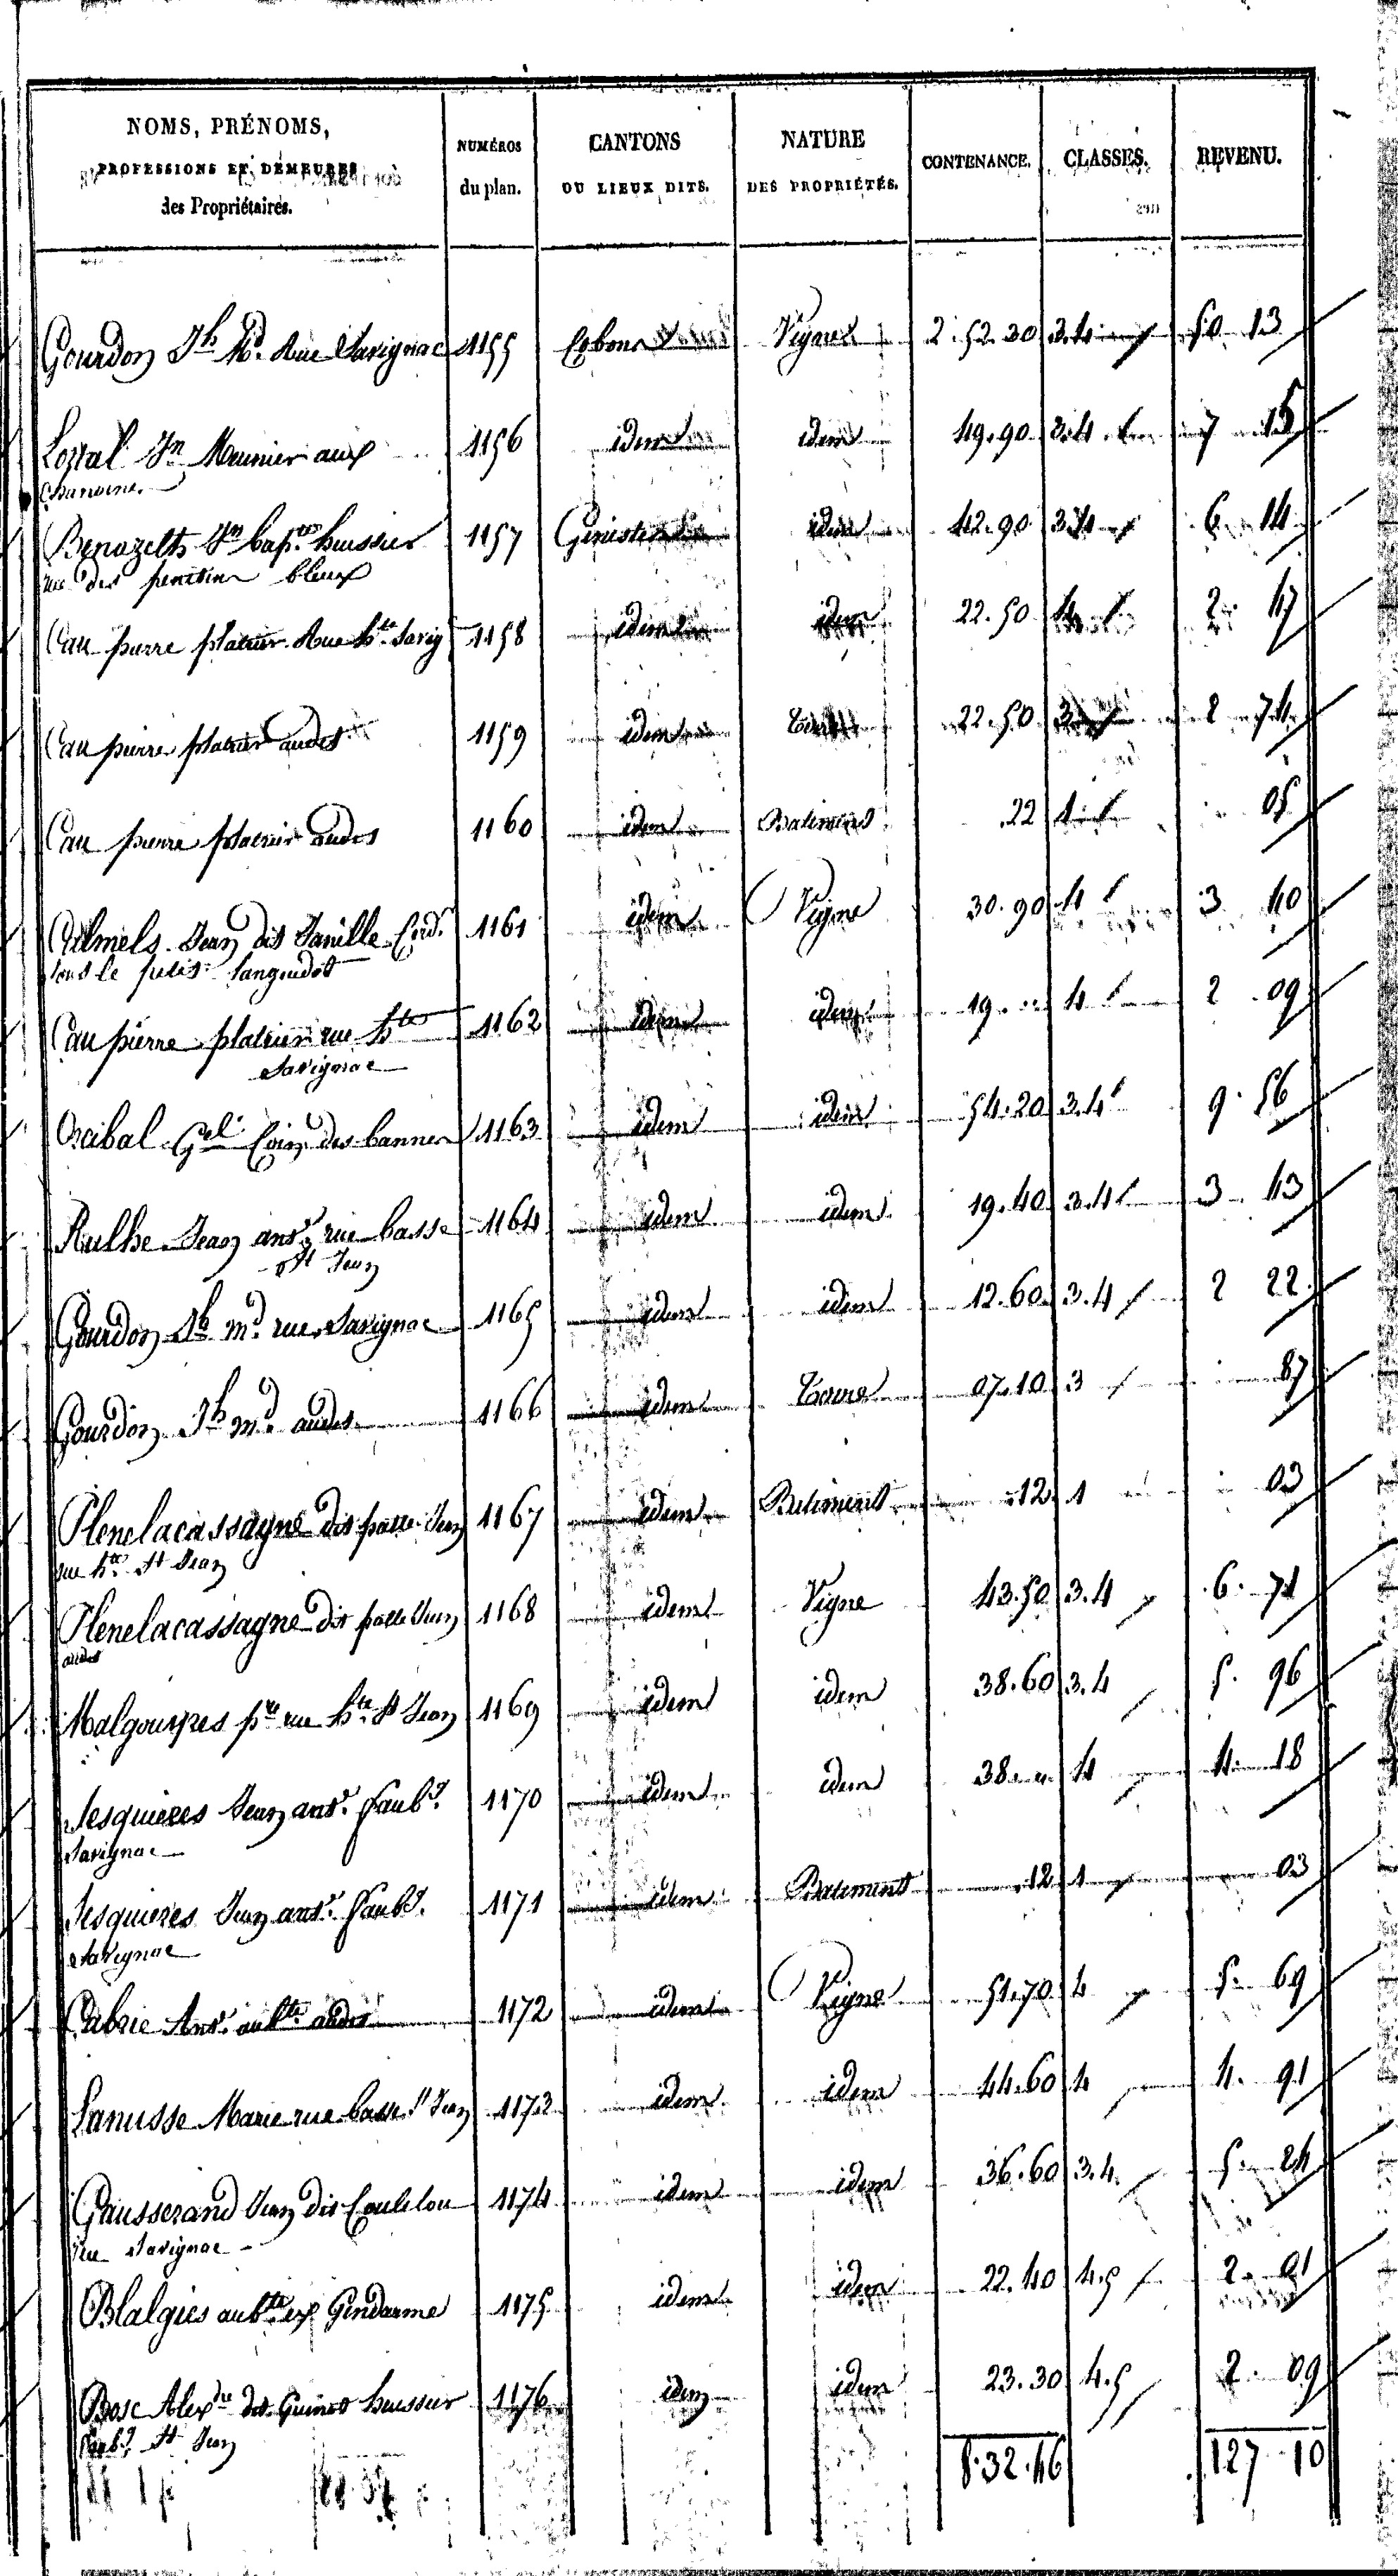 NOMS, PRÉNOMS, PROFESSIONS ET DEMEURES des Propriétaires. NUMÉROS du plan. CANTONS OU LIEUX DITS. NATURE DES PROPRIÉTÉS. CONTENANCE. CLASSES. REVENU.
Gourdon Jh Md. Rue Savignac 1155 Vignes 2.52.30 3.4 50 13
Loztal Jn Meunier aux 1156 idem idem 49.90 3.4 7 15
Chanoine.
Benazeth Jn bapte huissier 1157 idem 42.90 3.4 6 14
rue des penitens bleux
Cau pierre platrier Rue hte Savig 1158 idem idem 22.50 4 2 47
Cau pierre platrier audes 1159 idem Terre 22.50 3 2 74
Cau pierre platrier audes 1160 idem Batiment 22 1 05
Delmels Jean dit Janille 1161 idem Vigne 30.90 4 3 40
sous le petit Languedoc
Cau pierre platrier rue hte 1162 idem idem 19 4 2 09
Savignac
Orcibal Gel Coin des bannes 1163 idem idem 54.20 3.4 9 56
Rulhe Jean ant. rue basse 1164 idem idem 19.40 3.4 3 43
St Jean
Gourdon Jh md. rue Savignac 1165 idem idem 12.60 3.4 2 22
Gourdon Jh md. audes 1166 idem Terre 07.10 3 87
Plenelacassagne dit patte Jean 1167 idem Batiment 12 1 03
rue hte St Jean
Plenelacassagne dit patte Jean 1168 idem Vigne 43.50 3.4 6 71
audes
Malgouyres pre rue hte St Jean 1169 idem idem 38.60 3.4 5 96
Jesquieres Jean ant. faubg. 1170 idem idem 38 4 4 18
Savignac
Jesquieres Jean ant. faubg. 1171 idem Batiment 12 1 03
Savignac
Cabrie Ant. aubte audes 1172 idem Vigne 51.70 4 5 69
Lanusse Marie rue basse St Jean 1173 idem idem 44.60 4 4 91
Gausserand Jean dit Coulelou 1174 idem idem 36.60 3.4 5 24
rue Savignac
Blalgies aubte ex Gendarme 1175 idem idem 22.40 4.5 2 01
Bosc Alexdre dit Guinot huissier 1176 idem idem 23.30 4.5 2 09
faubg. St Jean
8.32.46 127 10